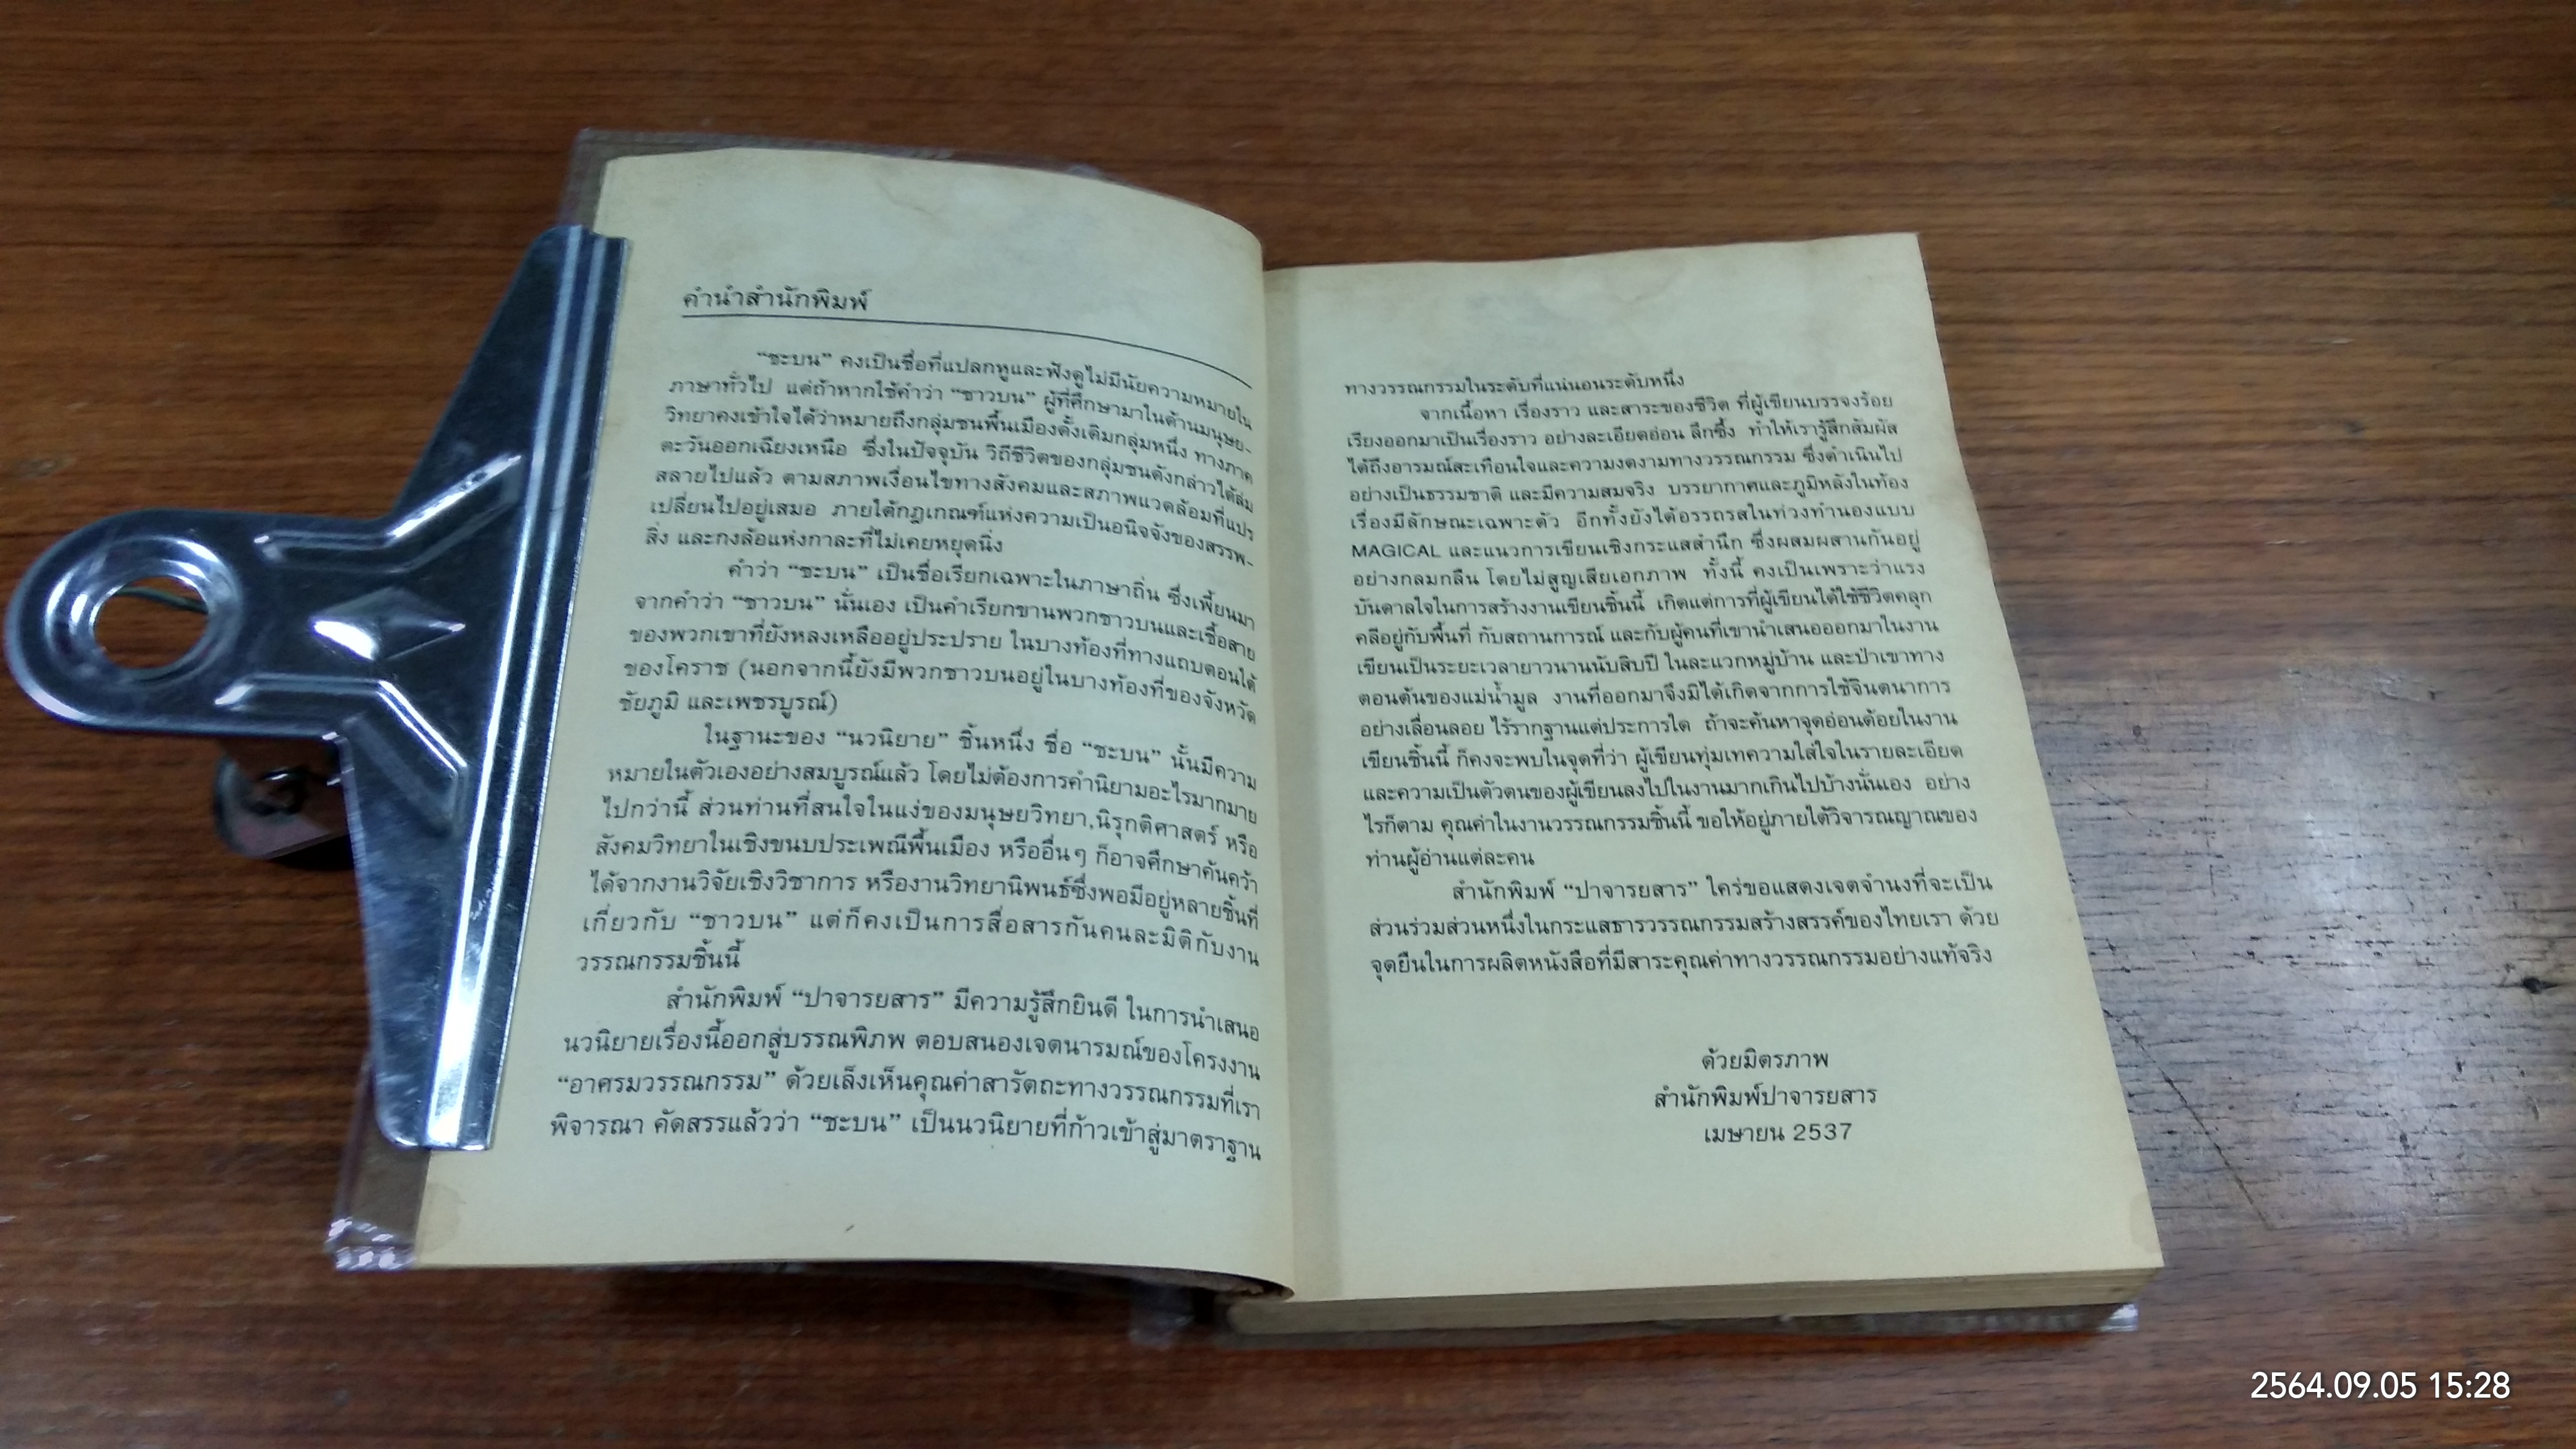 คำนำสำนักพิมพ์
“ชะบน” คงเป็นชื่อที่แปลกหูและฟังดูไม่มีนัยความหมายใน
ภาษาทั่วไป แต่ถ้าหากใช้คำว่า “ชาวบน” ผู้ที่ศึกษามาในด้านมนุษย-
วิทยาคงเข้าใจได้ว่าหมายถึงกลุ่มชนพื้นเมืองดั้งเดิมกลุ่มหนึ่ง ทางภาค
ตะวันออกเฉียงเหนือ ซึ่งในปัจจุบัน วิถีชีวิตของกลุ่มชนดังกล่าวได้ล่ม
สลายไปแล้ว ตามสภาพเงื่อนไขทางสังคมและสภาพแวดล้อมที่แปร
เปลี่ยนไปอยู่เสมอ ภายใต้กฎเกณฑ์แห่งความเป็นอนิจจังของสรรพ-
สิ่ง และกงล้อแห่งกาละที่ไม่เคยหยุดนิ่ง
คำว่า “ชะบน” เป็นชื่อเรียกเฉพาะในภาษาถิ่น ซึ่งเพี้ยนมา
จากคำว่า “ชาวบน” นั่นเอง เป็นคำเรียกขานพวกชาวบนและเชื้อสาย
ของพวกเขาที่ยังหลงเหลืออยู่ประปราย ในบางท้องที่ทางแถบตอนใต้
ของโคราช (นอกจากนี้ยังมีพวกชาวบนอยู่ในบางท้องที่ของจังหวัด
ชัยภูมิ และเพชรบูรณ์)
ในฐานะของ “นวนิยาย” ชิ้นหนึ่ง ชื่อ “ชะบน” นั้นมีความ
หมายในตัวเองอย่างสมบูรณ์แล้ว โดยไม่ต้องการคำนิยามอะไรมากมาย
ไปกว่านี้ ส่วนท่านที่สนใจในแง่ของมนุษยวิทยา,นิรุกติศาสตร์ หรือ
สังคมวิทยาในเชิงขนบประเพณีพื้นเมือง หรืออื่นๆ ก็อาจศึกษาค้นคว้า
ได้จากงานวิจัยเชิงวิชาการ หรืองานวิทยานิพนธ์ซึ่งพอมีอยู่หลายชิ้นที่
เกี่ยวกับ “ชาวบน” แต่ก็คงเป็นการสื่อสารกันคนละมิติกับงาน
วรรณกรรมชิ้นนี้
สำนักพิมพ์ “ปาจารยสาร” มีความรู้สึกยินดี ในการนำเสนอ
นวนิยายเรื่องนี้ออกสู่บรรณพิภพ ตอบสนองเจตนารมณ์ของโครงงาน
“อาศรมวรรณกรรม” ด้วยเล็งเห็นคุณค่าสารัตถะทางวรรณกรรมที่เรา
พิจารณา คัดสรรแล้วว่า “ชะบน” เป็นนวนิยายที่ก้าวเข้าสู่มาตราฐาน
ทางวรรณกรรมในระดับที่แน่นอนระดับหนึ่ง
จากเนื้อหา เรื่องราว และสาระของชีวิต ที่ผู้เขียนบรรจงร้อย
เรียงออกมาเป็นเรื่องราว อย่างละเอียดอ่อน ลึกซึ้ง ทำให้เรารู้สึกสัมผัส
ได้ถึงอารมณ์สะเทือนใจและความงดงามทางวรรณกรรม ซึ่งดำเนินไป
อย่างเป็นธรรมชาติ และมีความสมจริง บรรยากาศและภูมิหลังในท้อง
เรื่องมีลักษณะเฉพาะตัว อีกทั้งยังได้อรรถรสในท่วงทำนองแบบ
MAGICAL และแนวการเขียนเชิงกระแสสำนึก ซึ่งผสมผสานกันอยู่
อย่างกลมกลืน โดยไม่สูญเสียเอกภาพ ทั้งนี้ คงเป็นเพราะว่าแรง
บันดาลใจในการสร้างงานเขียนชิ้นนี้ เกิดแต่การที่ผู้เขียนได้ใช้ชีวิตคลุก
คลีอยู่กับพื้นที่ กับสถานการณ์ และกับผู้คนที่เขานำเสนอออกมาในงาน
เขียนเป็นระยะเวลายาวนานนับสิบปี ในละแวกหมู่บ้าน และป่าเขาทาง
ตอนต้นของแม่น้ำมูล งานที่ออกมาจึงมิได้เกิดจากการใช้จินตนาการ
อย่างเลื่อนลอย ไร้รากฐานแต่ประการใด ถ้าจะค้นหาจุดอ่อนด้อยในงาน
เขียนชิ้นนี้ ก็คงจะพบในจุดที่ว่า ผู้เขียนทุ่มเทความใส่ใจในรายละเอียด
และความเป็นตัวตนของผู้เขียนลงไปในงานมากเกินไปบ้างนั่นเอง อย่าง
ไรก็ตาม คุณค่าในงานวรรณกรรมชิ้นนี้ ขอให้อยู่ภายใต้วิจารณญาณของ
ท่านผู้อ่านแต่ละคน
สำนักพิมพ์ “ปาจารยสาร” ใคร่ขอแสดงเจตจำนงที่จะเป็น
ส่วนร่วมส่วนหนึ่งในกระแสธารวรรณกรรมสร้างสรรค์ของไทยเรา ด้วย
จุดยืนในการผลิตหนังสือที่มีสาระคุณค่าทางวรรณกรรมอย่างแท้จริง
ด้วยมิตรภาพ
สำนักพิมพ์ปาจารยสาร
เมษายน 2537
2564.09.05 15:28